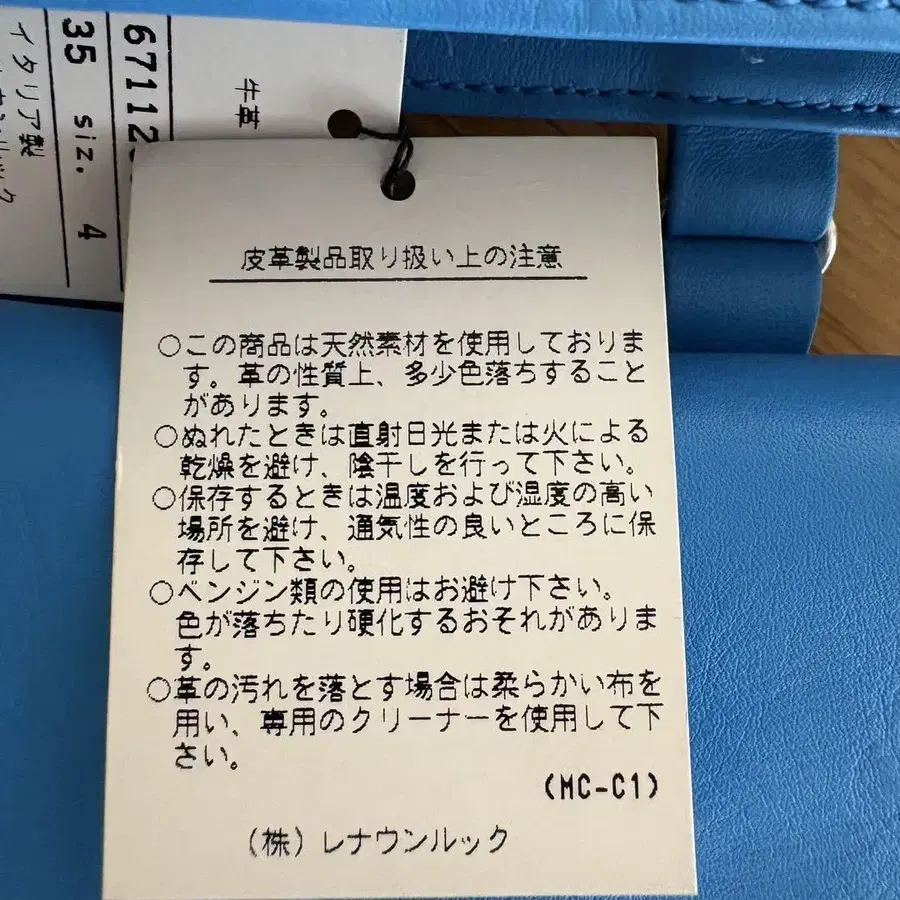 牛革
67112
35 siz. 4
イタリア製
皮革製品取り扱い上の注意
○この商品は天然素材を使用しておりま
す。革の性質上、多少色落ちすること
があります。
○ぬれたときは直射日光または火による
乾燥を避け、陰干しを行って下さい。
○保存するときは温度および湿度の高い
場所を避け、通気性の良いところに保
存して下さい。
○ベンジン類の使用はお避け下さい。
色が落ちたり硬化するおそれがありま
す。
○革の汚れを落とす場合は柔らかい布を
用い、専用のクリーナーを使用して下
さい。
(MC-C1)
(株)レナウンルック